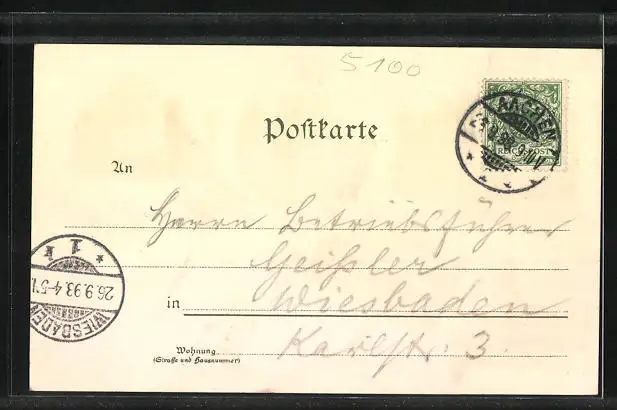 5100
Postkarte
AACHEN
REICHSPOST
An
Herrn Betriebsführer
Geißler
in Wiesbaden
Karlstr. 3.
Wohnung
(Straße und Hausnummer)
1
26.9.93.4-5N.
WIESBADEN